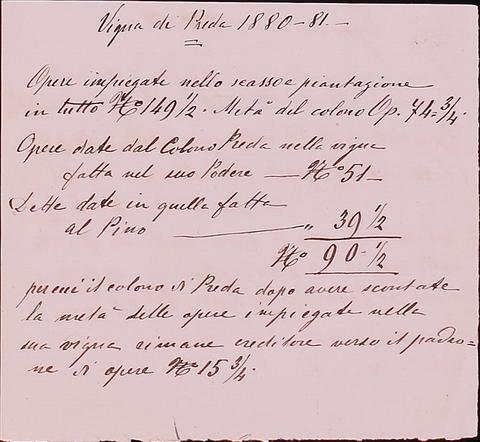 Vigna di Preda 1880-81.-
Opere impiegate nello scasso e piantagione
in tutto N.o 149 1/2. Metà del colono Op. 74-3/4.
Opere date dal Colono Preda nella vigna
fatta nel suo Podere — N.o 51-
Dette date in quella fatta
al Pino — " 39 1/2
N.o 90-1/2
perciò il colono di Preda dopo avere scontate
la metà delle opere impiegate nella
sua vigna rimane creditore verso il padro=
ne di opere N.o 15 3/4.